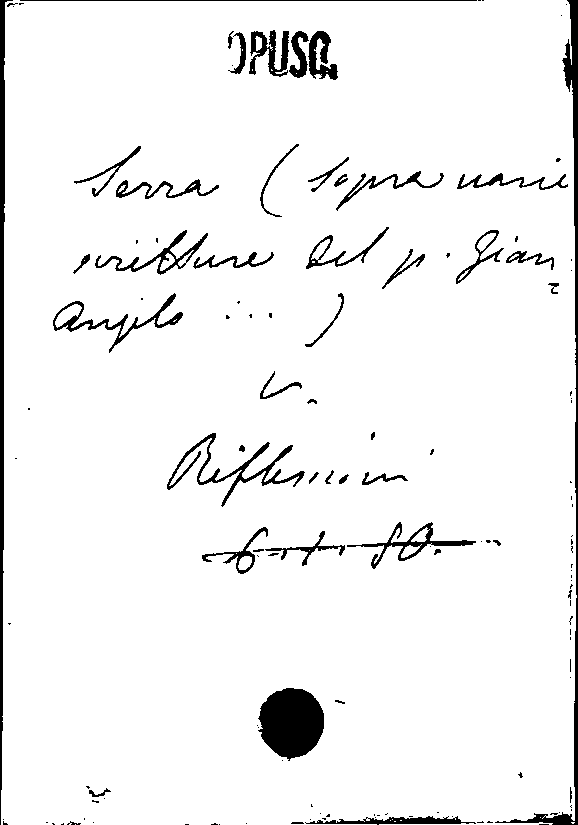 OPUSC.
Serra (Sopra varie
scritture del p. Gian-
Angelo ... )
v.
Riflessioni
6.1.80.